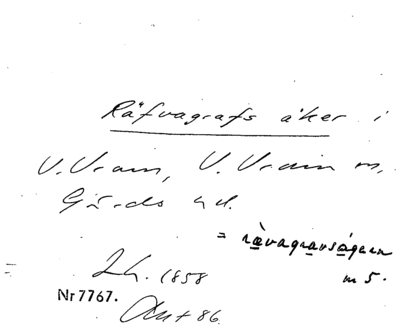 Räfvagrafs åker i
V. Vram, V. Vram sn,
Gärds hd.
= rävagravsågarn
m 5.
Lh. 1858
Nr 7767.
Ant 86